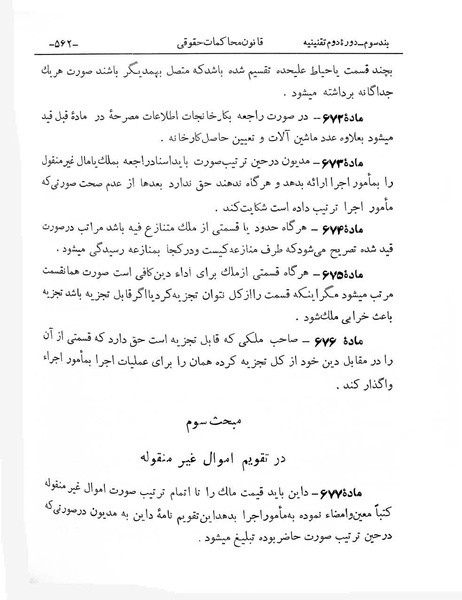 بند سوم ـ دورهٔ دوم تقنینیه
قانون محاکمات حقوقی
-۵۶۲-
بچند قسمت یا حیاط علیحده تقسیم شده باشد که متصل بهمدیگر باشند صورت هریك
جداگانه برداشته میشود .
مادهٔ ۶۷۲ ـ در صورت راجعه بکارخانجات اطلاعات مصرحهٔ در مادهٔ قبل قید
میشود بعلاوه عدد ماشین آلات و تعیین حاصل کارخانه .
مادهٔ ۶۷۳ ـ مدیون در حین ترتیب صورت باید اسناد راجعه بملك یا مال غیر منقول
را بمأمور اجرا ارائه بدهد و هرگاه ندهند حق ندارد بعدها از عدم صحت صورتی که
مأمور اجرا ترتیب داده است شکایت کند .
مادهٔ ۶۷۴ ـ هرگاه حدود یا قسمتی از ملك متنازع فیه باشد مراتب در صورت
قید شده تصریح می‌شود که طرف منازعه کیست و در کجا بمنازعه رسیدگی میشود .
مادهٔ ۶۷۵ ـ هرگاه قسمتی از ملك برای اداء دین کافی است صورت همان قسمت
مرتب میشود مگر اینکه قسمت را از کل نتوان تجزیه کرد یا اگر قابل تجزیه باشد تجزیه
باعث خرابی ملك شود .
مادهٔ ۶۷۶ ـ صاحب ملکی که قابل تجزیه است حق دارد که قسمتی از آن
را در مقابل دین خود از کل تجزیه کرده همان را برای عملیات اجرا بمأمور اجراء
واگذار کند .
مبحث سوم
در تقویم اموال غیر منقوله
مادهٔ ۶۷۷ ـ داین باید قیمت ملك را تا اتمام ترتیب صورت اموال غیر منقوله
کتباً معین و امضاء نموده به مأمور اجرا بدهد این تقویم نامهٔ داین به مدیون در صورتی که
در حین ترتیب صورت حاضر بوده تبلیغ میشود .